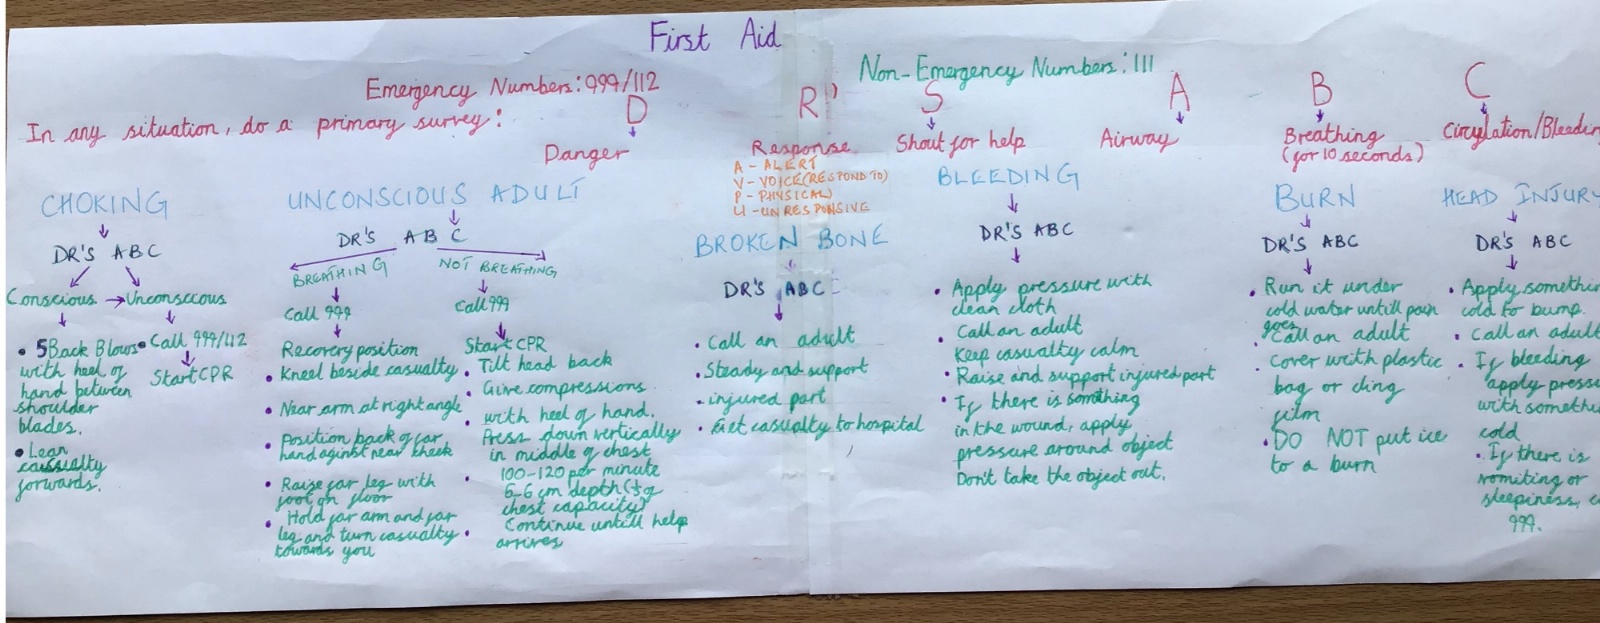 First Aid
Emergency Numbers: 999/112
Non-Emergency Numbers: 111
In any situation, do a primary survey:
D
R
S
A
B
C
Danger
Response
A - ALERT
V - VOICE (RESPOND TO)
P - PHYSICAL)
U - UNRESPONSIVE
Shout for help
Airway
Breathing
(for 10 seconds)
Circulation/Bleedin
CHOKING
DR'S ABC
Conscious → Unconsccous
• 5 Back Blows
with heel of
hand between
shoulder
blades.
• Lean
forwards.
• Call 999/112
Start CPR
UNCONSCIOUS ADULT
DR'S ABC
BREATHING
Call 999
Recovery position
• Kneel beside casualty
• Near arm at right angle
• Position back of far
hand aginst near cheek
• Raise far leg with
foot on floor
• Hold far arm and far
leg and turn casualty
towards you
NOT BREATHING
Call 999
Start CPR
• Tilt head back
• Give compressions
• with heel of hand.
Press down vertically
in middle of chest
• 100-120 per minute
5-6 cm depth (⅓ of
chest capacity)
Continue untill help
• arrives
BROKEN BONE
DR'S ABC
• Call an adult
• Steady and support
• injured part
• Get casualty to hospital
BLEEDING
DR'S ABC
• Apply pressure with
clean cloth
• Call an adult
Keep casualty calm
• Raise and support injured part
• If there is something
in the wound, apply
pressure around object
Don't take the object out.
BURN
DR'S ABC
• Run it under
cold water untill pain
goes
• Call an adult
• Cover with plastic
bag or cling
film
• DO NOT put ice
to a burn
HEAD INJURY
DR'S ABC
• Apply somethin
cold to bump.
• Call an adult
• If bleeding
apply press
with somethi
cold
• If there is
vomiting or
sleepiness, c
999.